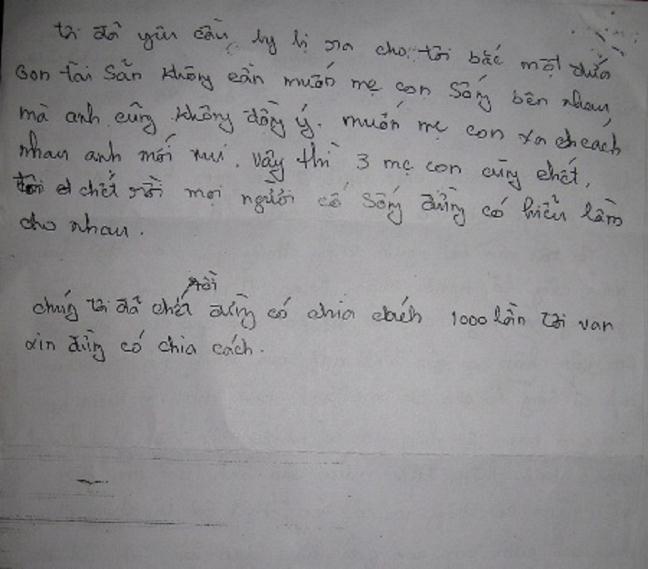 tôi đã yêu cầu ly dị ra cho tôi bắc một đứa
con tài sản không cần muốn mẹ con sống bên nhau
mà anh cũng không đồng ý. muốn mẹ con xa chcách
nhau anh mới vui. vậy thì 3 mẹ con cùng chết.
tôi chết rồi mọi người cố sống đừng có hiểu lầm
cho nhau.
chúng tôi đã chết rồi đừng có chia cách 1000 lần tôi van
xin đừng có chia cách.